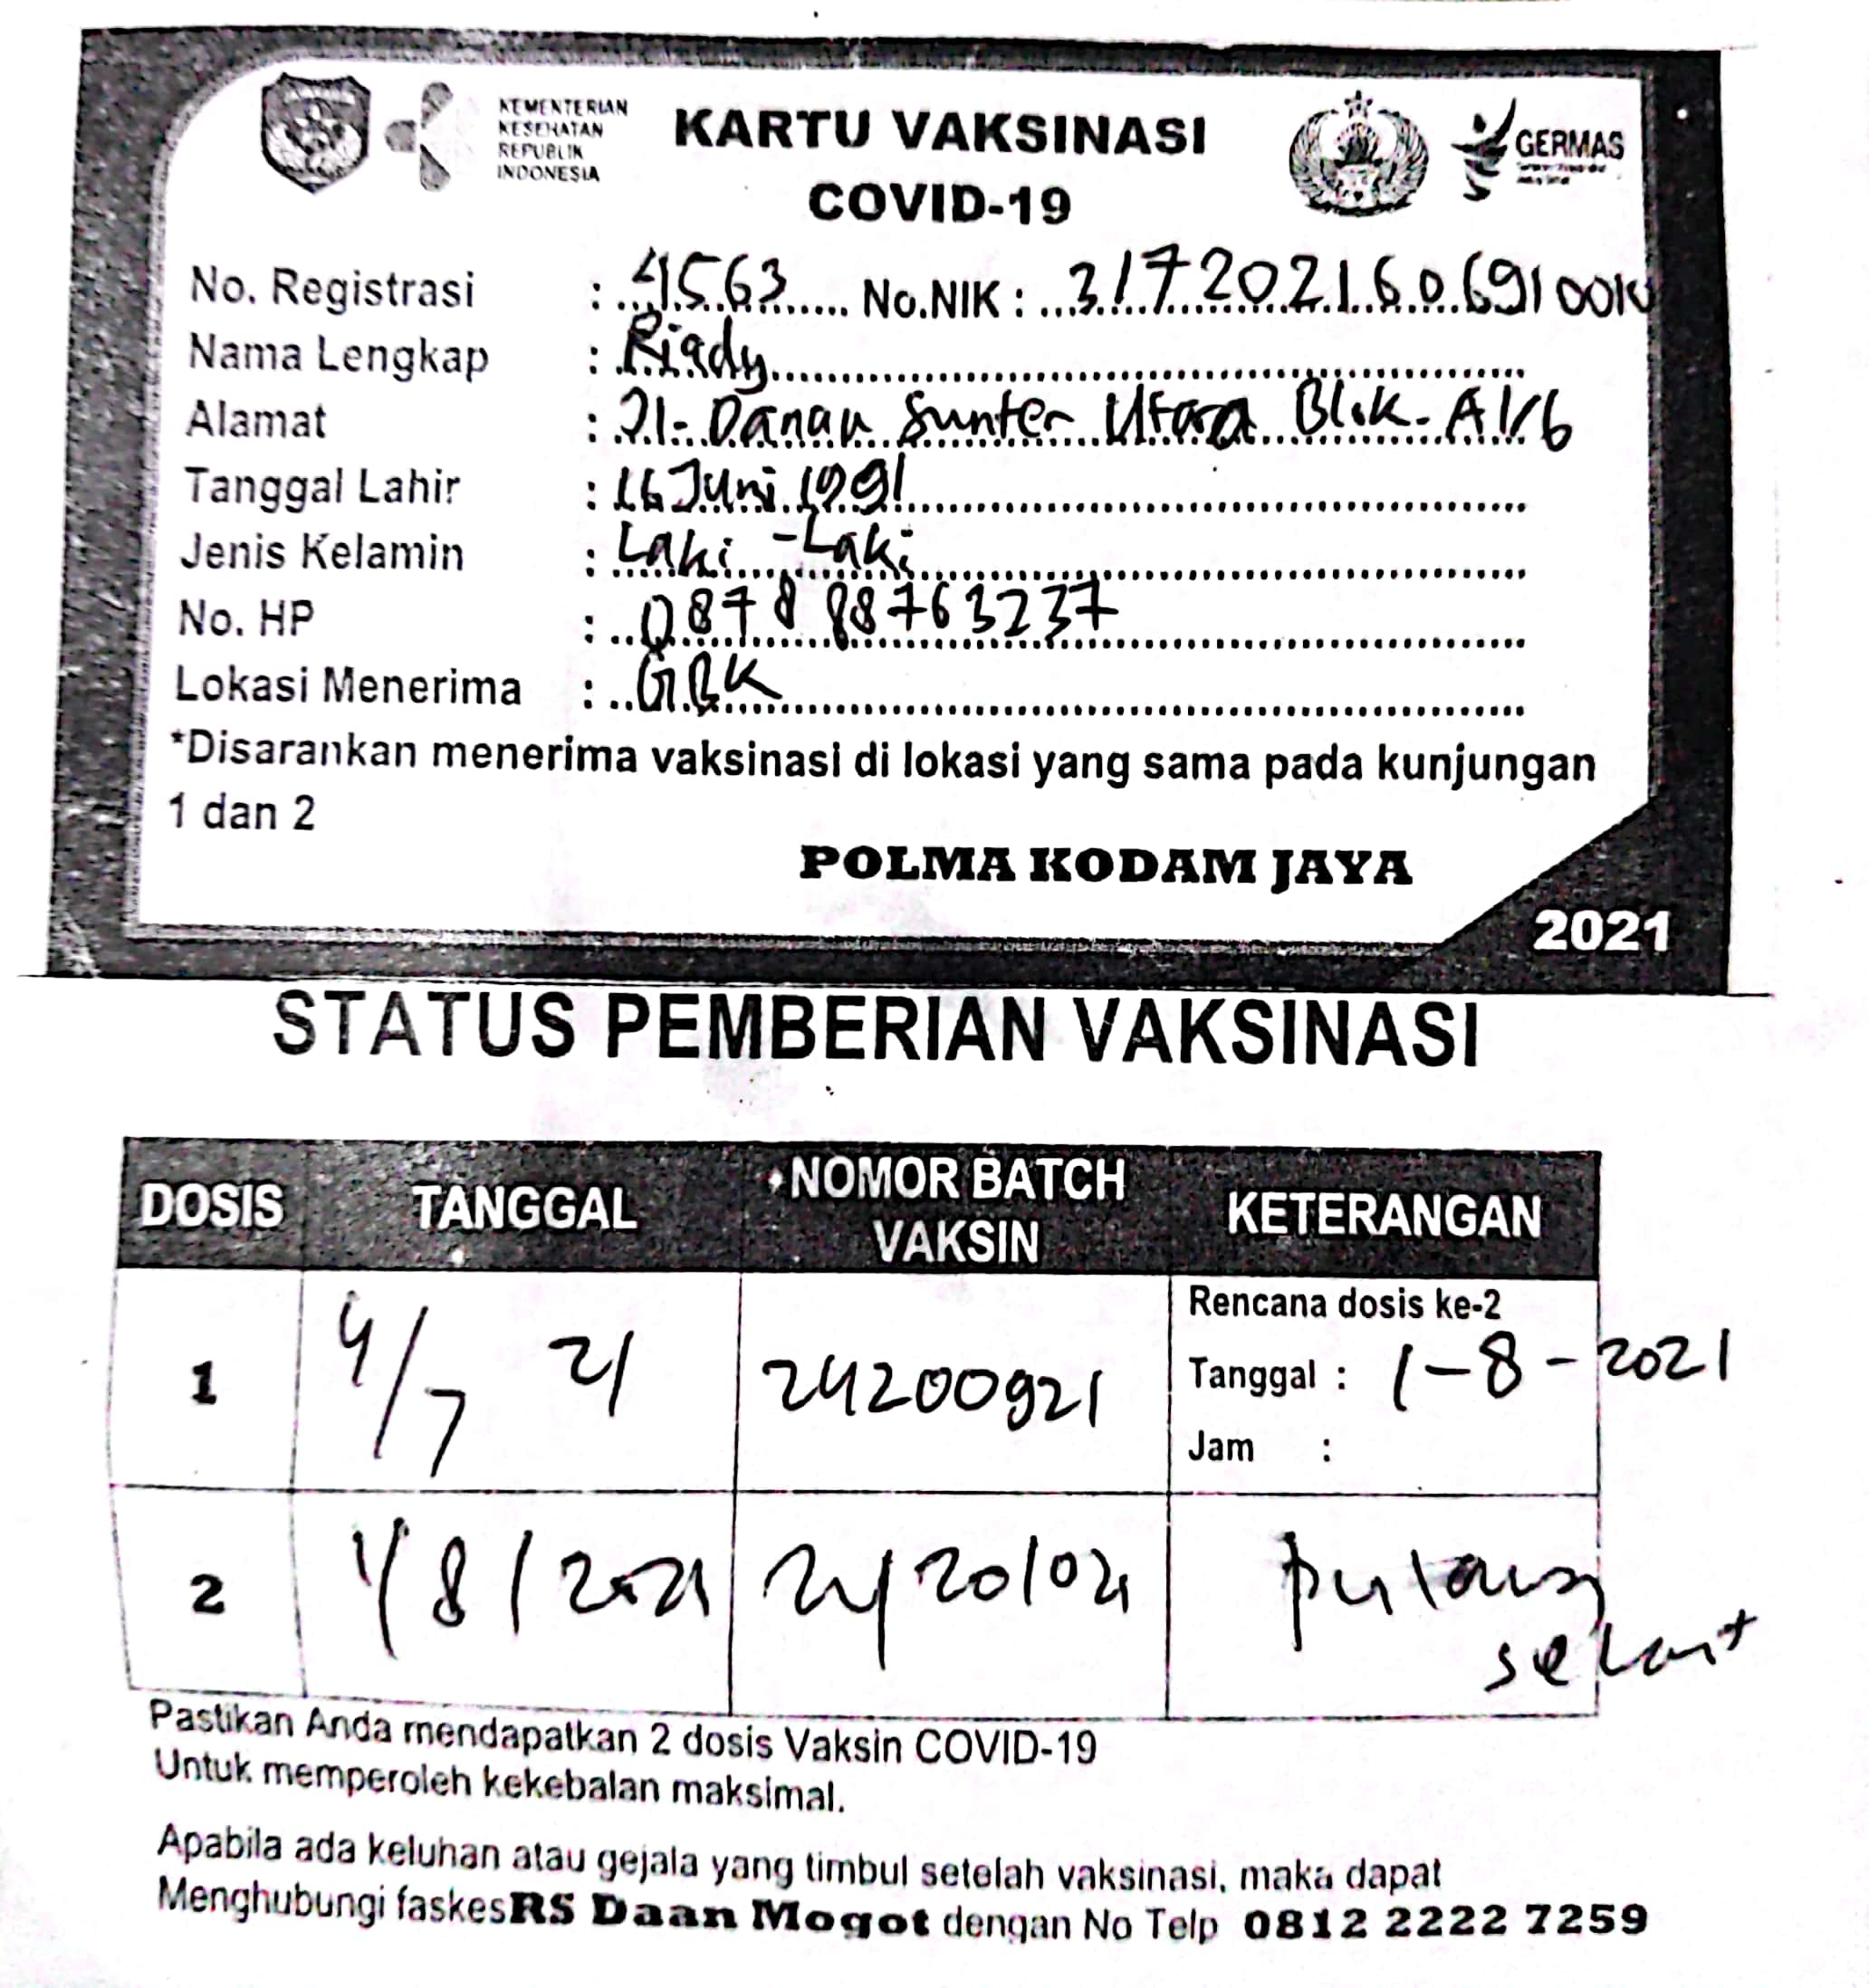 KEMENTERIAN
KESEHATAN
REPUBLIK
INDONESIA
KARTU VAKSINASI
COVID-19
GERMAS
No. Registrasi : 4563 No.NIK : 317202160691001
Nama Lengkap : Riady
Alamat : Jl. Danau Sunter Utara Blok-A1/6
Tanggal Lahir : 16 Juni 1991
Jenis Kelamin : Laki-Laki
No. HP : 087888763237
Lokasi Menerima : GBK
*Disarankan menerima vaksinasi di lokasi yang sama pada kunjungan
1 dan 2
POLMA KODAM JAYA
2021
STATUS PEMBERIAN VAKSINASI
DOSIS TANGGAL NOMOR BATCH VAKSIN KETERANGAN
1 4/7 21 24200921 Rencana dosis ke-2
Tanggal : 1-8-2021
Jam :
2 1/8/2021 pulang
sehat
Pastikan Anda mendapatkan 2 dosis Vaksin COVID-19
Untuk memperoleh kekebalan maksimal.
Apabila ada keluhan atau gejala yang timbul setelah vaksinasi, maka dapat
Menghubungi faskes RS Daan Mogot dengan No Telp 0812 2222 7259